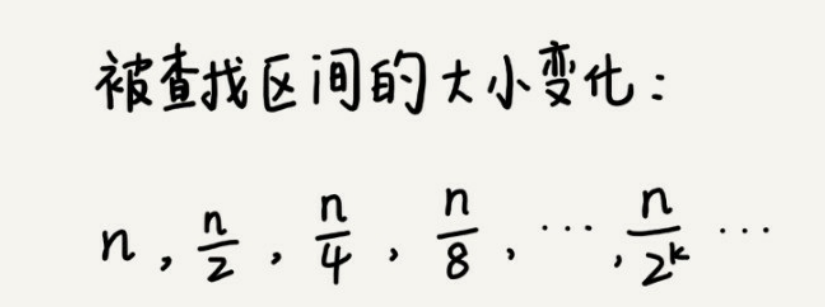 被查找区间的大小变化：
n , n/2 , n/4 , n/8 , ··· , n/2^k ···